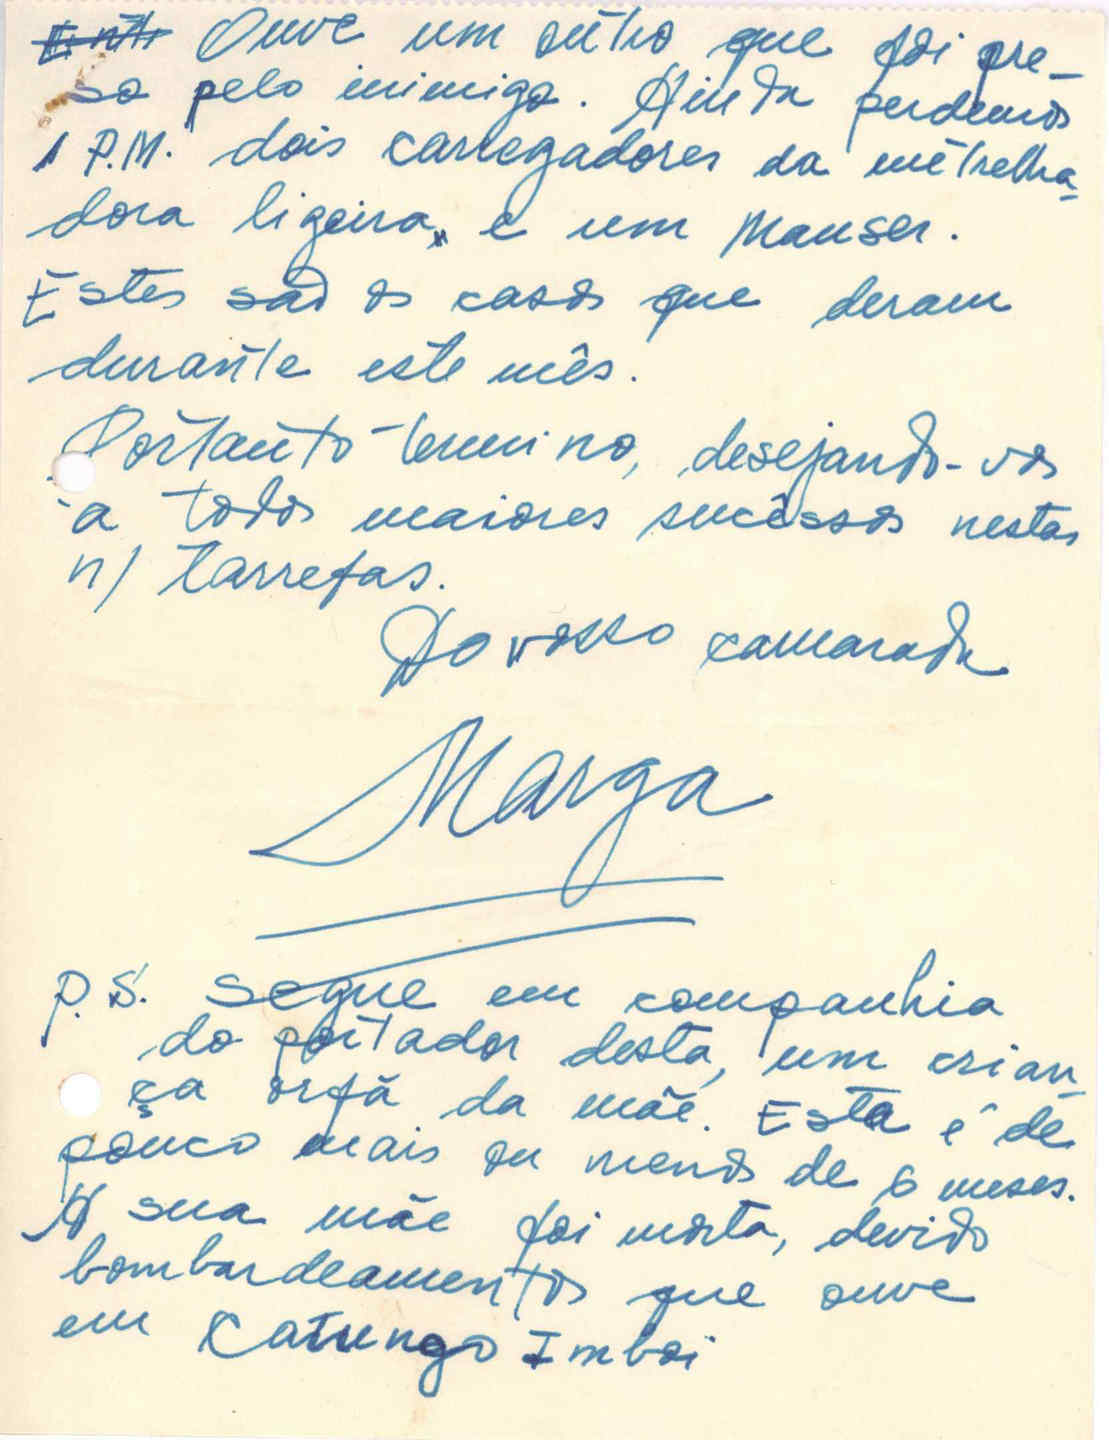 Ouve um outro que foi pre-
so pelo inimigo. Ainda perdemos
1 P.M. dois carregadores da metrelha-
dora ligeira, e um Mauser.
Estes são os casos que deram
durante este mês.
Portanto termino, desejando-vos
a todos maiores sucêssos nestas
n/ tarrefas.
Do vosso camarada
Marga
P.S. Segue em companhia
do portador desta, um crian-
ça orfã da mãe. Esta é de
pouco mais ou menos de 6 meses.
A sua mãe foi morta, devido
bombardeamentos que ouve
em Catungo Imboi